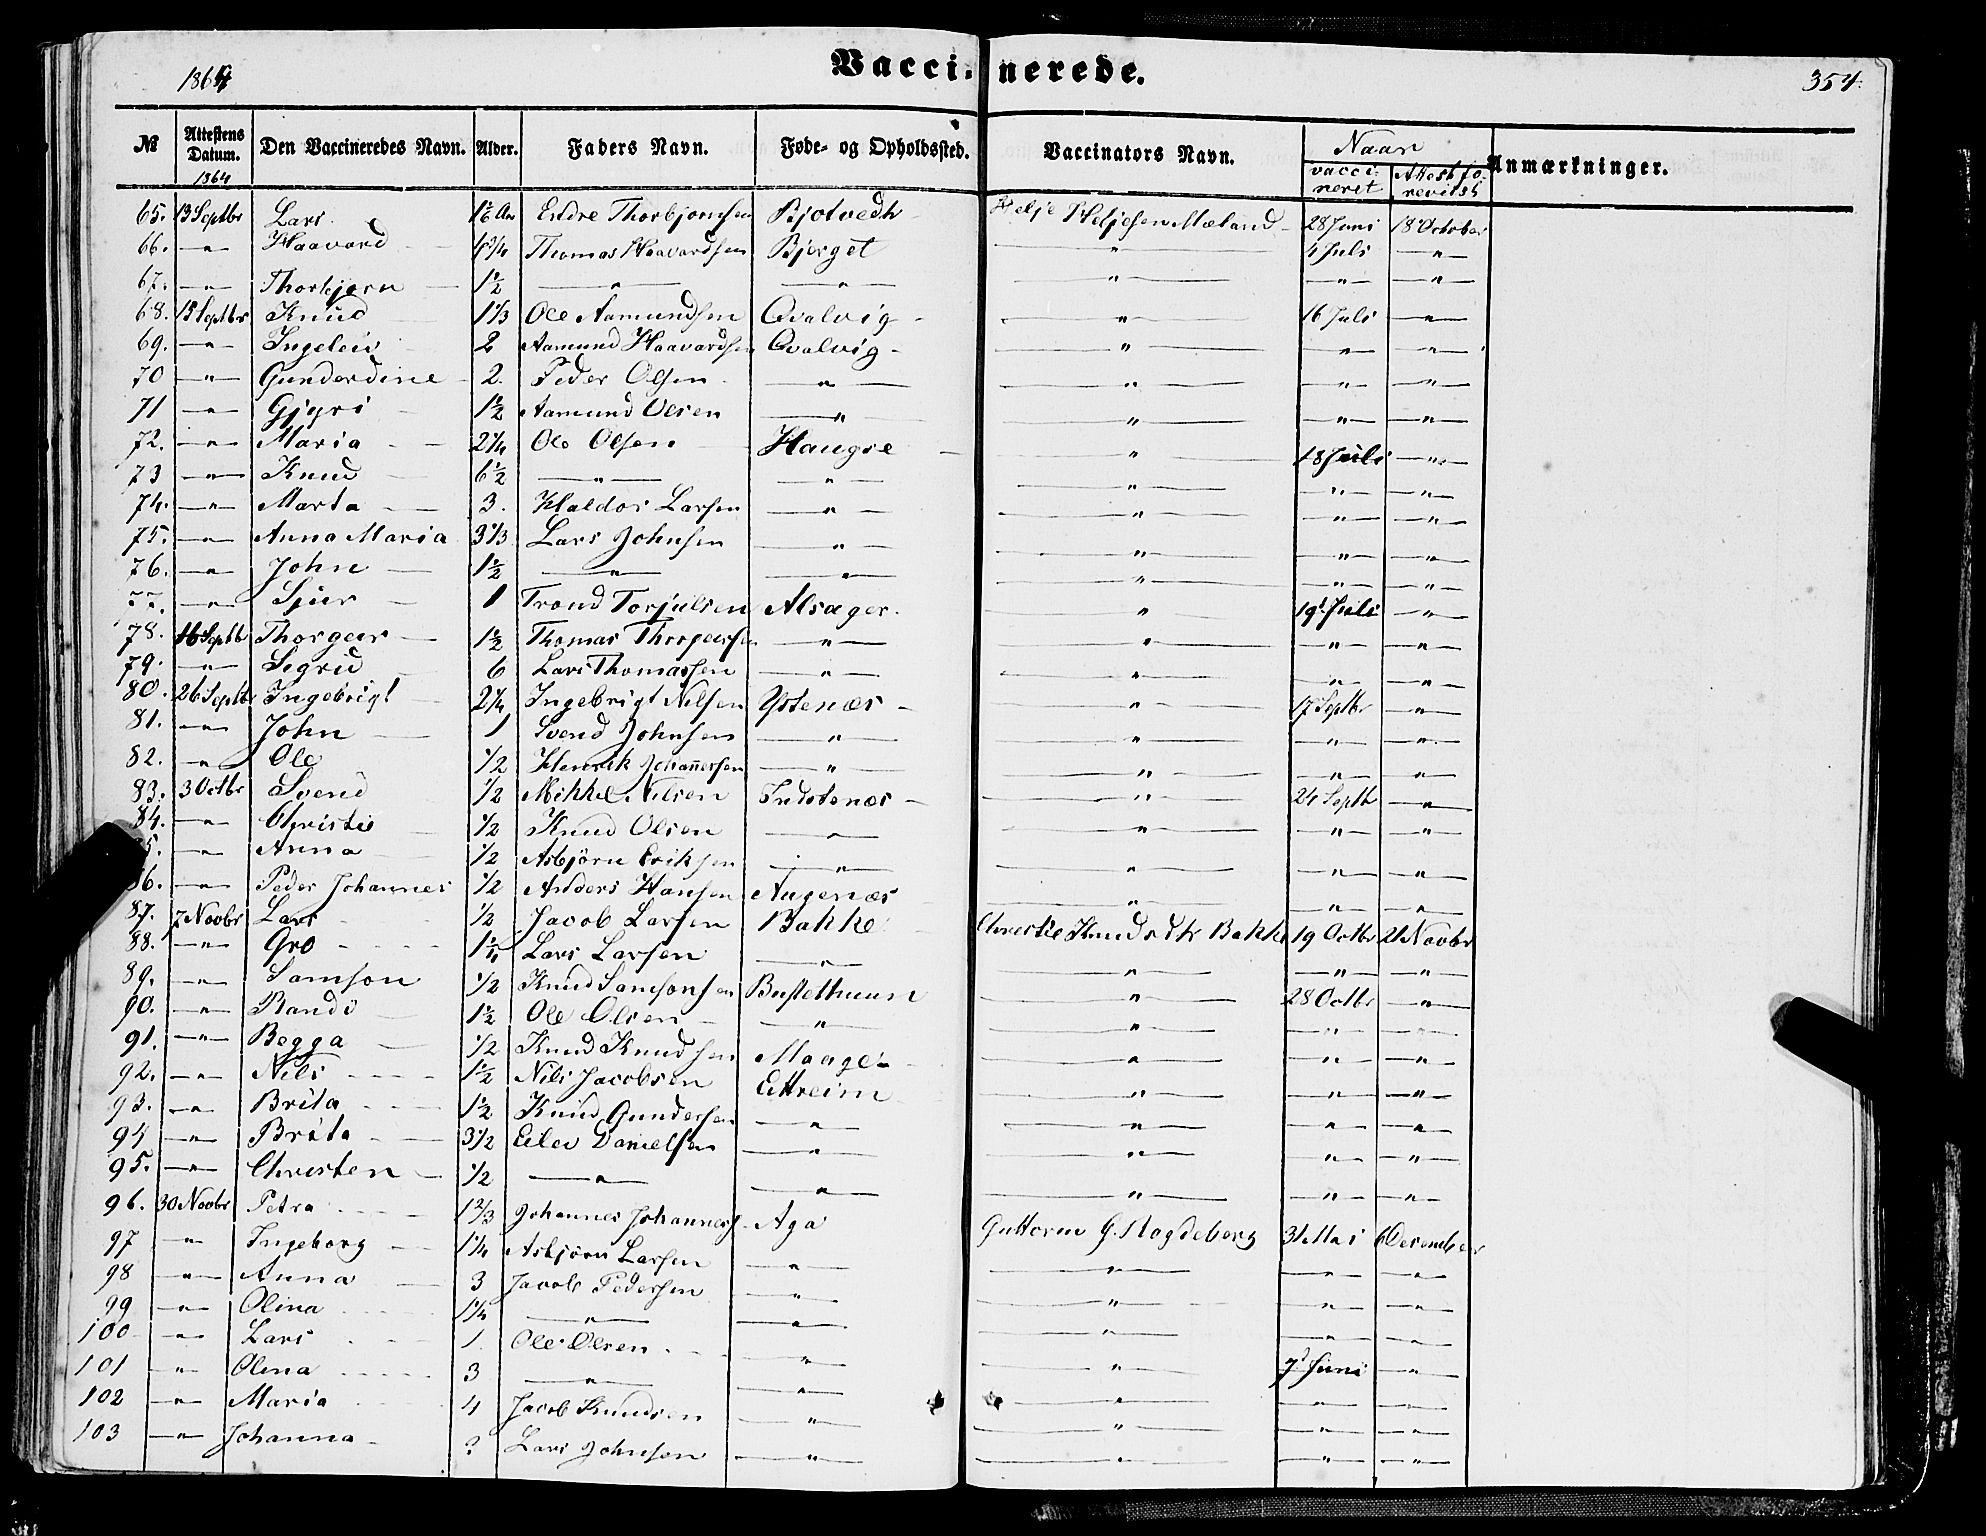 1864 Vaccinerede. 354.
№ Attestens Datum. Den Vaccineredes Navn. Alder. Faders Navn. Føde- og Opholdssted. Vaccinators Navn. Naar vaccineret Attest forevitst Anmærkninger.
1864
65. 13 Septbr Lars Endre Thorbjornsen Bjotvedt Helje Heljesen Mæland 28 Juni 18 October
66. -"- Haavard 1 3/4 Thomas Haavardsen Bjerget -"- 4 Juli -"-
67. -"- Thorbjørn 1 1/2 -"- -"- -"- -"- -"-
68. 15 Septbr Knud 1 1/3 Ole Aamundsen Qvalvig -"- 16 Juli -"-
69. -"- Ingeleiv 2 Aamund Haavardsen Qvalvig -"- -"- -"-
70 -"- Gunderdine 2. Peder Olsen -"- -"- -"- -"-
71 -"- Gjyri 1 1/2 Aamund Olsen -"- -"- -"- -"-
72. -"- Maria 2 1/4 Ole Olsen Haugse -"- 18 Juli -"-
73 -"- Knud 6 1/2 -"- -"- -"- -"- -"-
74. -"- Marta 3. Haldor Larsen -"- -"- -"- -"-
75. -"- Anna Maria 3 1/3 Lars Johnsen -"- -"- -"- -"-
76. -"- John 1 1/2 -"- -"- -"- -"- -"-
77. -"- Sjur 1 Trond Torjulsen Alsager. -"- 19 Juli -"-
78. 16 Septb Thorgeir 1 1/2 Thomas Thorgeirsen -"- -"- -"- -"-
79. -"- Sigrid 6 Lars Thomassen -"- -"- -"- -"-
80. 26 Septb Ingebrigt 2 1/4 Ingebrigt Nilsen Ystenæs -"- 17 Septbr -"-
81. -"- John 1 Svend Johnsen -"- -"- -"- -"-
82. -"- Ole 1/2 Henrik Johannessen -"- -"- -"- -"-
83. 3 Octbr Svend 1/2 Mikkel Nilsen Indstenæs -"- 24 Septb -"-
84. -"- Christie 1/2 Knud Olsen -"- -"- -"- -"-
5. -"- Anna 1/2 Asbjörn Eriksen -"- -"- -"- -"-
86. -"- Peder Johannes 1/2 Anders Hansen Augenæs -"- -"- -"-
87. 7 Novbr Lars 1/2 Jacob Larsen Bakke Christie Knudsdtr Bakke 19 Octbr 21 Novbr
88. -"- Gro Lars Larsen -"- -"- -"- -"-
89. -"- Samson 1/2 Knud Samsonsen Bustethuun -"- 28 Octbr -"-
90. -"- Randi 1 1/2 Ole Olsen -"- -"- -"- -"-
91. -"- Begga 1/2 Knud Knudsen Maage -"- -"- -"-
92. -"- Nils 1 1/2 Nils Jacobsen Eitreim -"- -"- -"-
93. -"- Brita 1 1/2 Knud Gundersen -"- -"- -"- -"-
94 -"- Brita 3 1/2 Eilev Danielsen -"- -"- -"- -"-
95. -"- Christen 1/2 -"- -"- -"- -"- -"-
96. 30 Novbr Petra 1 2/3 Johannes Johannes Aga Guttorm G. Magdeborg 31 Mai 6 December
97 -"- Ingeborg 1 1/4 Asbjörn Larsen -"- -"- -"- -"-
98 -"- Anna 3 Jacob Pedersen -"- -"- -"- -"-
99 -"- Olina 1 1/4 -"- -"- -"- -"- -"-
100 -"- Lars 1. Ole Olsen -"- -"- 7 Juni -"-
101 -"- Olina 3 -"- -"- -"- -"- -"-
102 -"- Maria 4 Jacob Knudsen -"- -"- -"- -"-
103 -"- Johanna ? Lars Johnsen -"- -"- -"- -"-